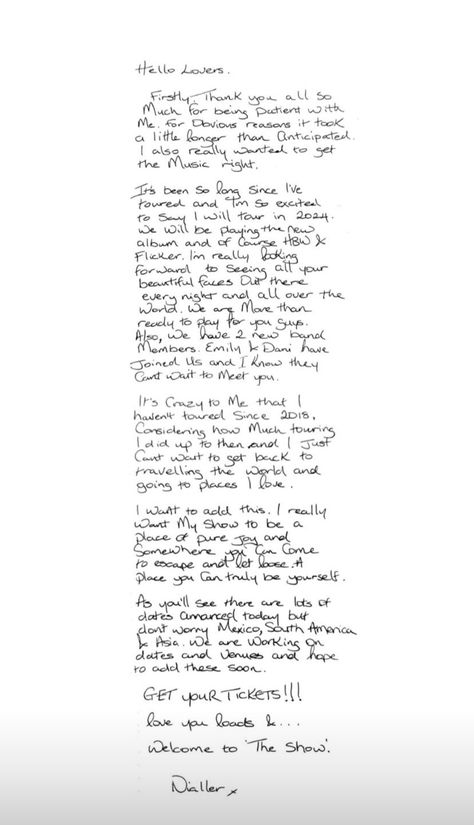 Hello Lovers.
Firstly, Thank you all so
Much for being patient with
Me. For Obvious reasons it took
a little longer than anticipated.
I also really wanted to get
the Music right.
It's been so long since I've
toured and I'm so excited
to say I will tour in 2024.
We will be playing the new
album and of course HBW &
Flicker. I'm really looking
forward to seeing all your
beautiful faces Out there
every night and all over the
World. We are More than
ready to play for you guys.
Also, We have 2 new band
Members. Emily & Dani have
Joined Us and I Know they
Cant Wait to Meet you.
It's Crazy to Me that I
havent toured Since 2018,
Considering how Much touring
I did up to then and I Just
Cant wait to get back to
travelling the World and
going to places I love.
I Want to add this. I really
Want My Show to be a
place of pure Joy and
Somewhere you Can Come
to escape and let loose. A
place you Can truly be yourself.
As you'll see there are lots of
dates announced today but
dont worry Mexico, South America
& Asia. We are Working on
dates and Venues and hope
to add these soon.
GET YOUR TICKETS!!!
love you loads &...
Welcome to 'The Show'.
Nialler x